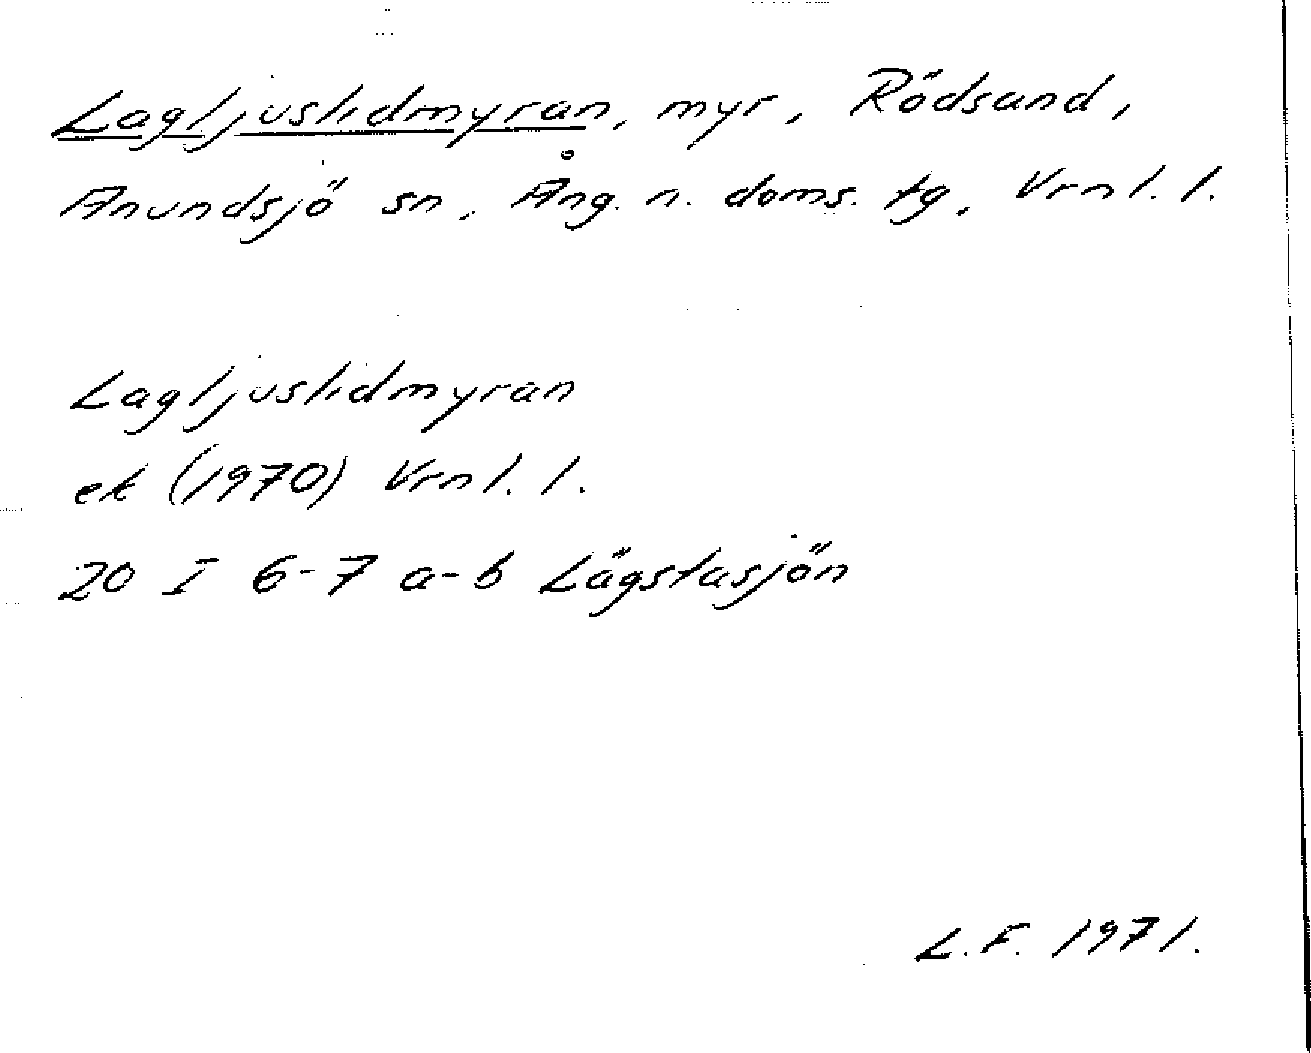 Lagljuslidmyran, myr, Rödsand,
Anundsjö sn, Ång. n. doms. tg, Vrnl. l.
Lagljuslidmyran
ek (1970) Vrnl. l.
20 I 6-7 a-b Lägstasjön
L.F. 1971.